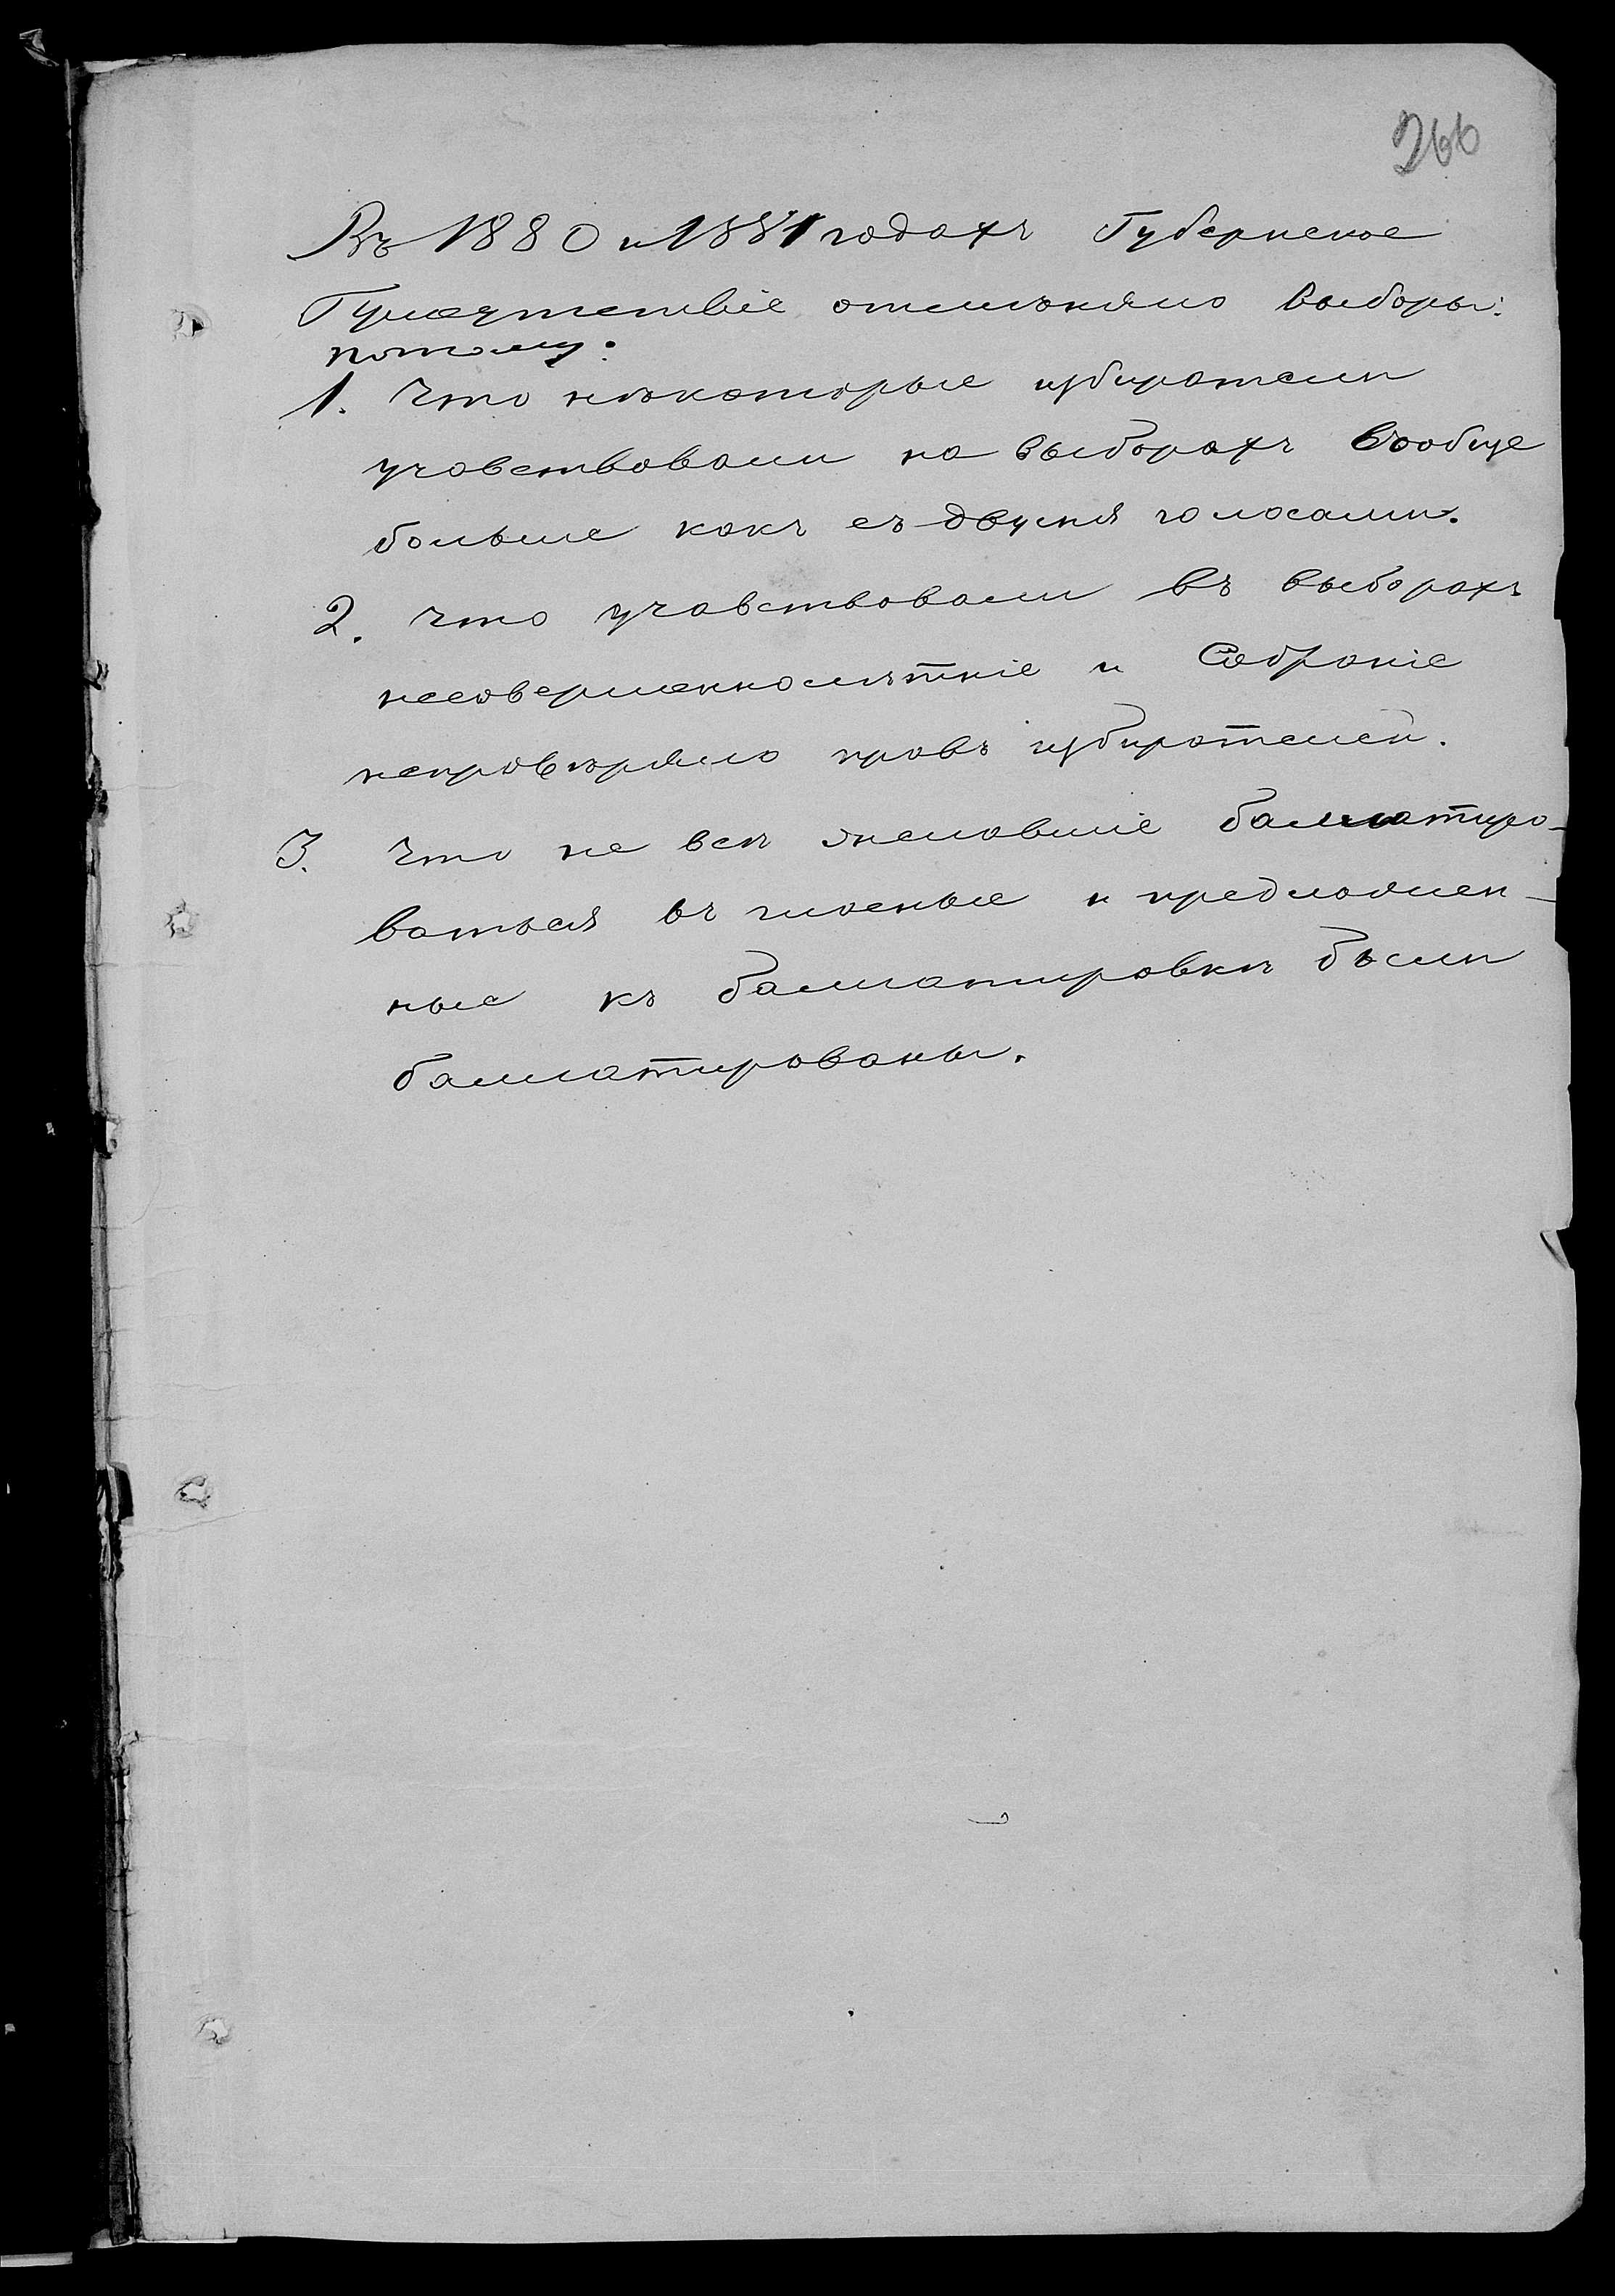 266
Въ 1880 и 1881 годахъ Губернское
Присутствіе отменяло выборы:
потому:
1. Что некоторые избиратели
учавствовали на выборахъ вообще
больше какъ съ двумя голосами.
2. что учавствовали въ выборахъ
несовершеннолѣтніе и Собраніе
непровѣряло правъ избирателей.
3. Что не всѣ желавшіе баллатиро-
ваться въ гласные и предложен-
ные къ баллатировкѣ были
баллатированы.